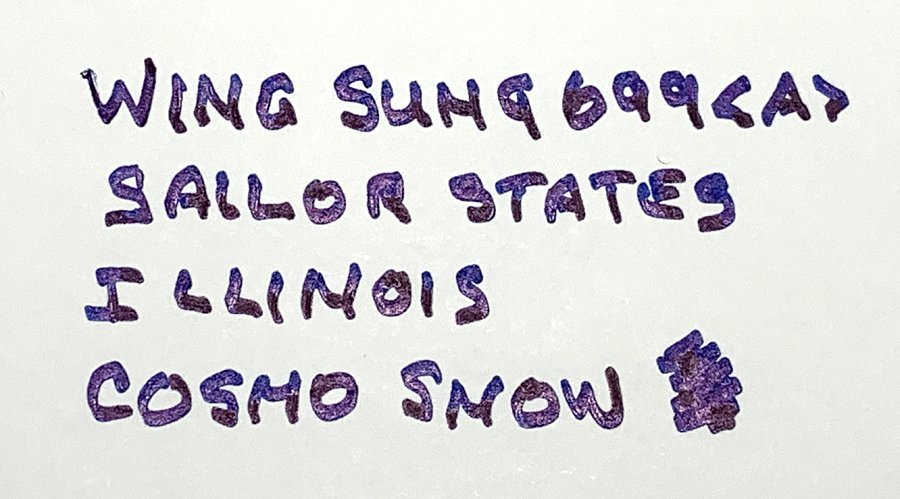 WING SUNG 699 <A>
SAILOR STATES
ILLINOIS
COSMO SNOW